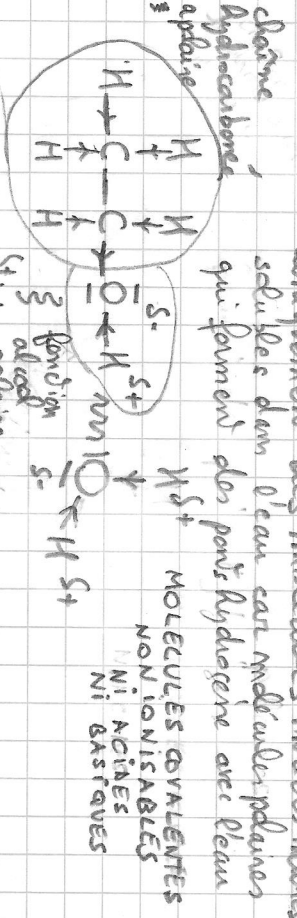 solubles dans l'eau car molécules polaires
qui forment des ponts hydrogène avec l'eau
chaîne
hydrocarbonée
apolaire
H H
H C C O H
H H
δ- δ+
fonction
alcool
H δ+
O
δ- H δ+
MOLECULES COVALENTES
NON IONISABLES
NI ACIDES
NI BASIQUES